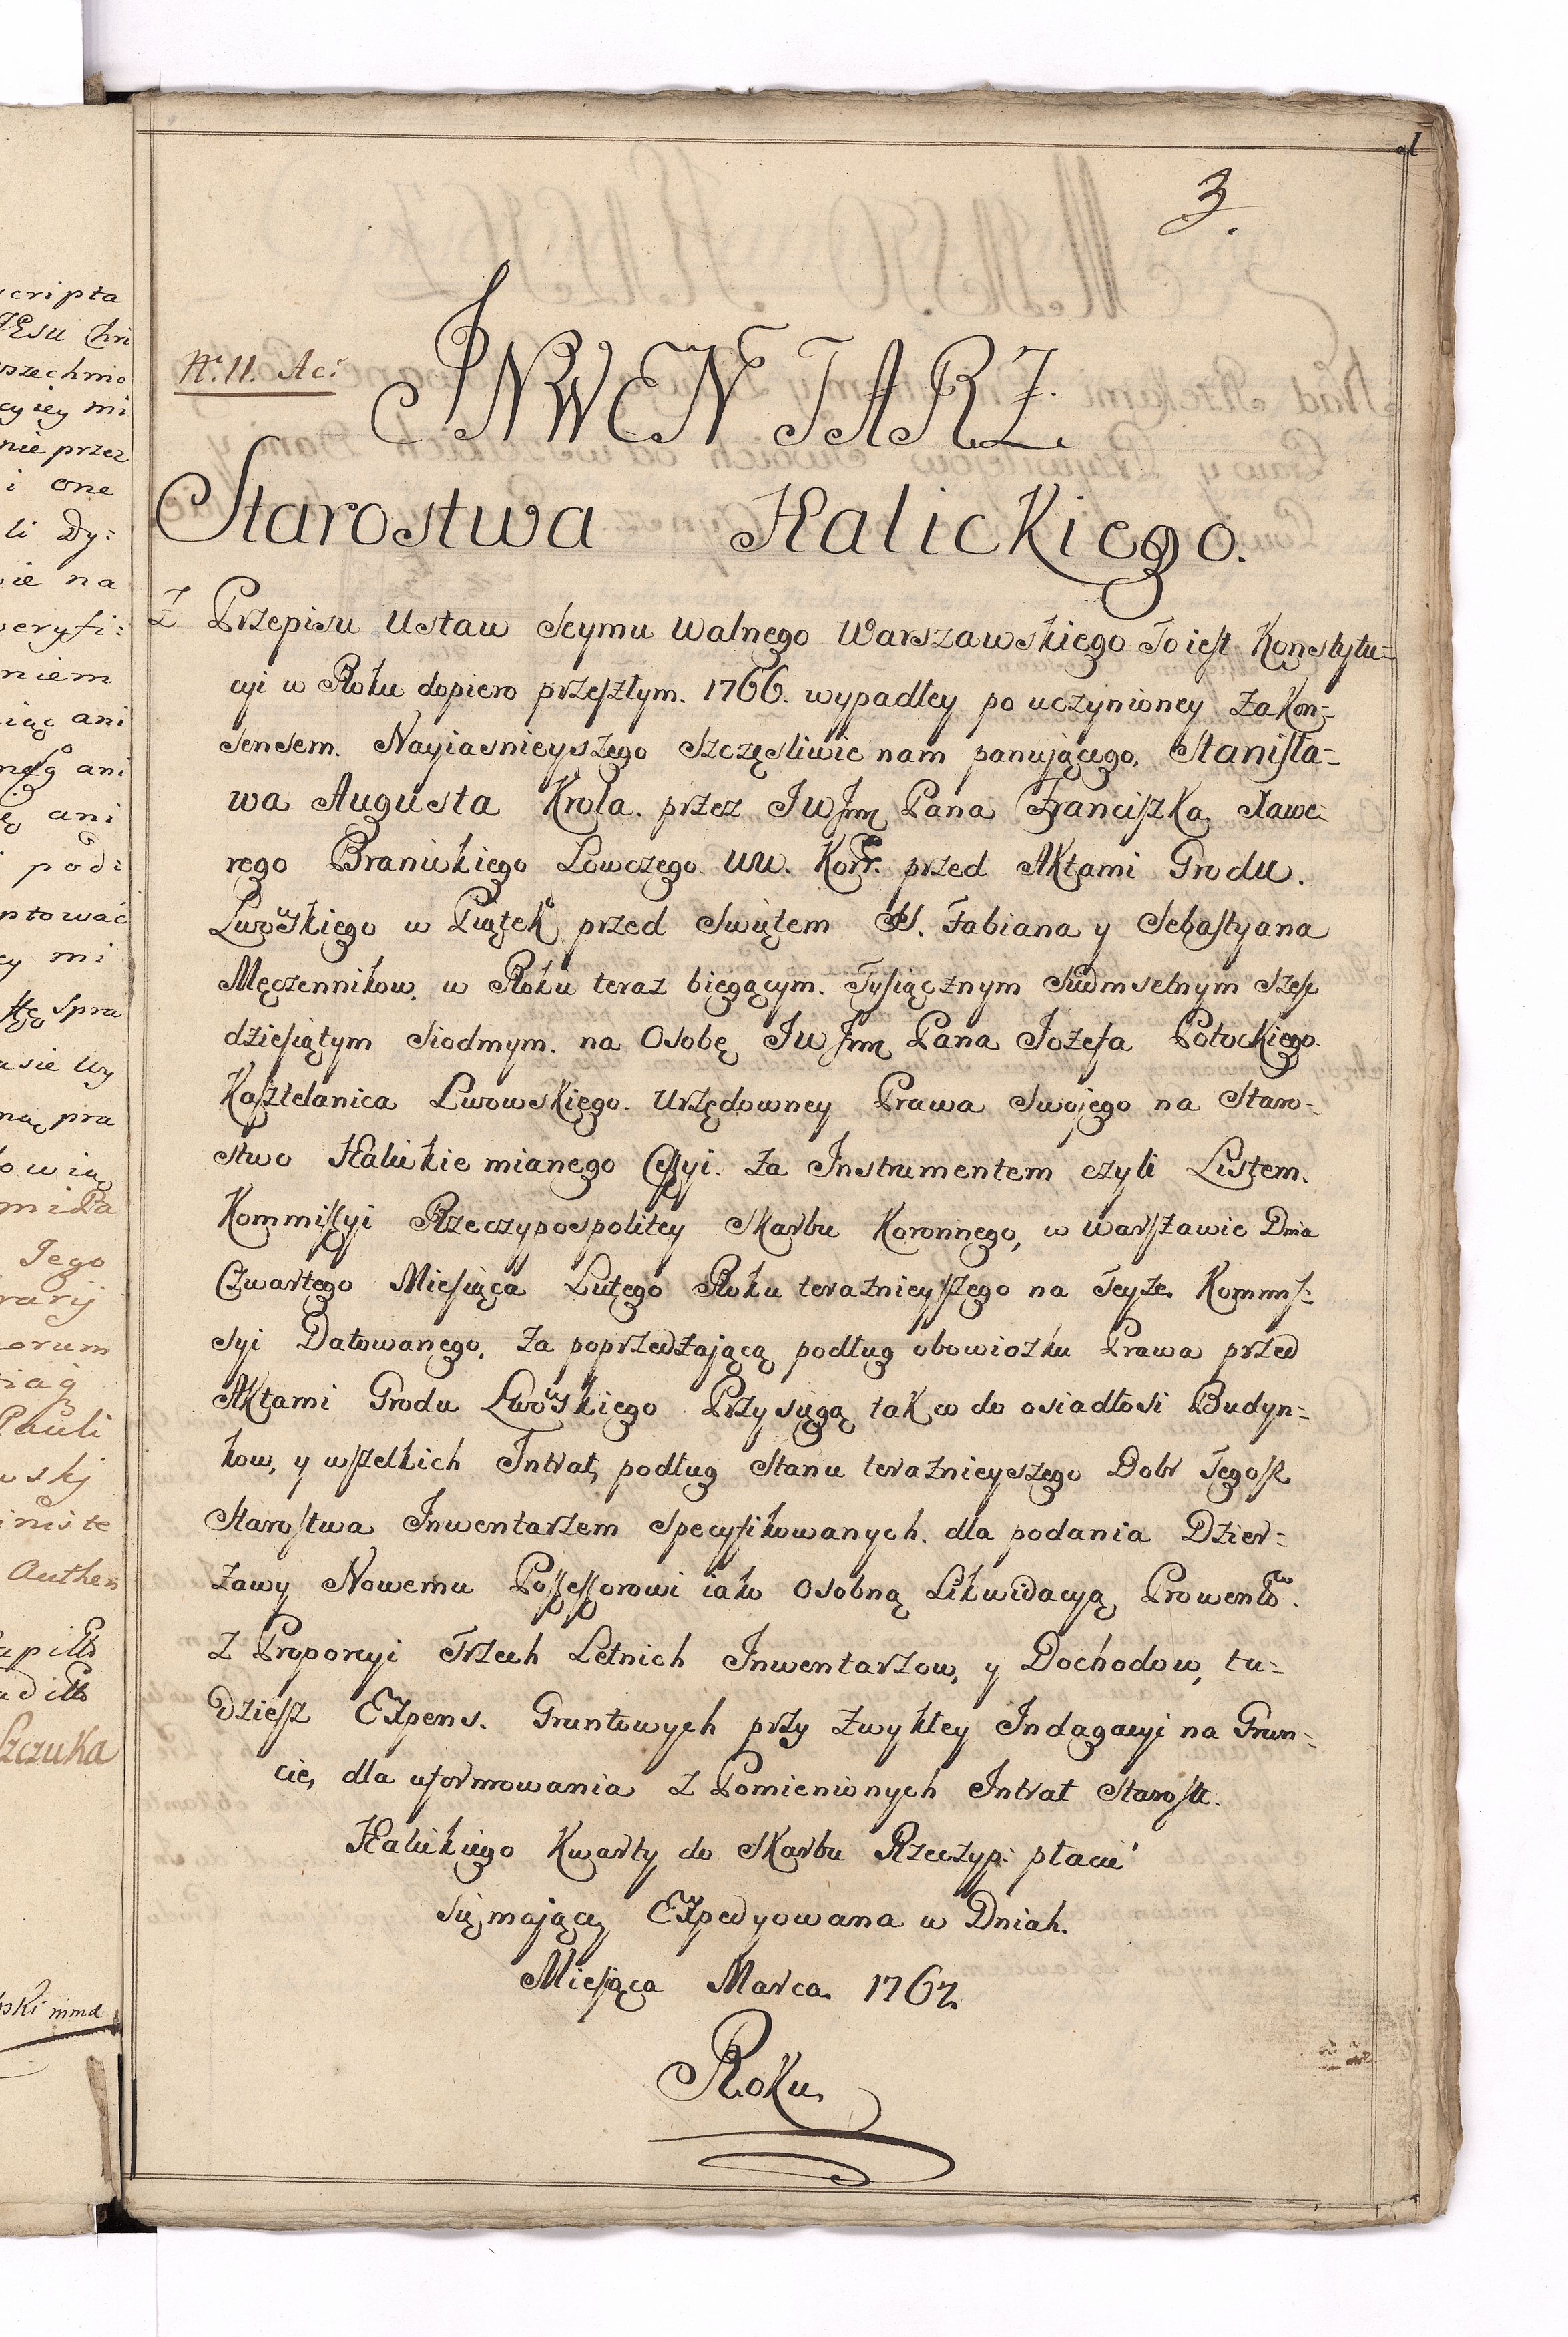 cripta
JEsu Chri
szechmo
cyiey mi
nie przez
i one
li Dy:
ie na
weryfi:
niem
iąc ani
ani
ani
podi
ptować
cy mi
spra
asie wy
ną pra
owią
Jego
rarij
orum
Pauli
wskj
iniste
Authen
Szczuka
ski mma
1
3.
N. 11. Ac:
JNWENTARZ.
Starostwa Halickiego.
Z Przepisu Ustaw Seymu Walnego Warszawskiego To iest Konstytu=
cyi w Roku dopiero przeszłym. 1766. wypadłey po uczynioney za Kon=
sensem. Nayiasnieyszego szczęsliwie nam panującego, Stanisła=
wa Augusta Krola. przez JW Jmę Pana Franciszka Xawe=
rego Branickiego Lowczego WW. Korr. przed Aktami Grodu.
Lwowskiego w Piątek przed Swiętem SS. Fabiana y Sebastyana
Męczennikow, w Roku teraz biegącym. Tysiącznym Siedmsetnym Szesc
dziesiątym siodmym. na Osobę JW Jmę Pana Jozefa Potockiego.
Kasztelanica Lwowskiego. Urzędowney Prawa Swojego na Staro=
stwo Halickie mianego Cessyi. za Instrumentem czyli Listem.
Kommissyi Rzeczypospolitey Skarbu Koronnego, w Warszawie Dnia
Czwartego Miesiąca Lutego Roku teraznieyszego na Teyze Kommis=
syi Datowanego, za poprzedzającą podług obowiozku Prawa przed
Aktami Grodu Lwowskiego Przysięgą tak co do osiadłosi Budyn=
kow, y wszelkich Intrat, podług Stanu teraznieyszego Dobr Tegosz
Starostwa Inwentarzem specyfikowanych. dla podania Dzier=
zawy Nowemu Possessorowi iako Osobną Likwidacyą Prowentow.
z Proporcyi Trzech Letnich Inwentarzow, y Dochodow, tu=
dziesz Expens. Gruntowych przy zwykłey Indagacyi na Grun=
cie, dla uformowania z Pomienionych Intrat Starost.
Halickiego Kwarty do Skarbu Rzeczyp: płacić
się mającey Expedyowana w Dniach.
Miesiąca Marca 1767.
Roku